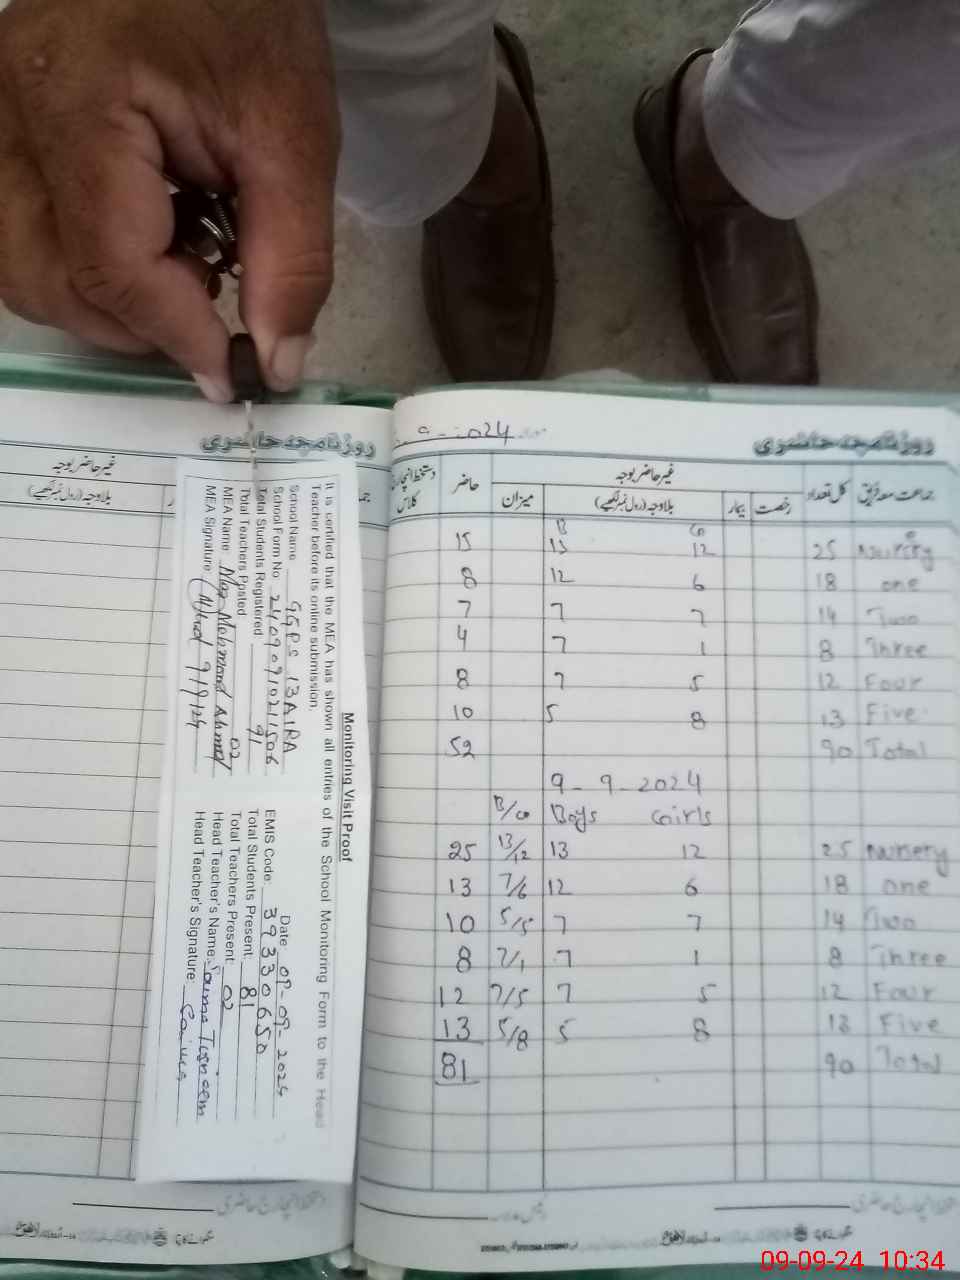 روزنامچہ حاضری
غیر حاضر بوجہ
بلاوجہ (رول نمبر لکھیے)
Monitoring Visit Proof
It is certified that the MEA has shown all entries of the School Monitoring Form to the Head
Teacher before its online submission.
School Name GGPS 13A1RA Date: 09-09-2024
School Form No 2409091021506 EMIS Code: 39330650
Total Students Registered 91 Total Students Present: 81
Total Teachers Posted: 02 Total Teachers Present: 02
MEA Name Mehmood Ahmad Head Teacher's Name: Saima
MEA Signature 9/9/24 Head Teacher's Signature: Saima
روزنامچہ حاضری
9-2024
جماعت معہ فریق کل تعداد رخصت بیمار غیر حاضر بوجہ میزان حاضر دستخط انچارج کلاس
بلاوجہ (رول نمبر لکھیے)
B G
15 13 12 25 Nursery
8 12 6 18 one
7 7 7 14 Two
4 7 1 8 Three
8 7 5 12 Four
10 5 8 13 Five
52 90 Total
9-9-2024
B/G Boys Girls
25 13/12 13 12 25 Nursery
13 7/6 12 6 18 one
10 5/5 7 7 14 Two
8 7/1 7 1 8 Three
12 7/5 7 5 12 Four
13 5/8 5 8 13 Five
81 90 Total
09-09-24 10:34